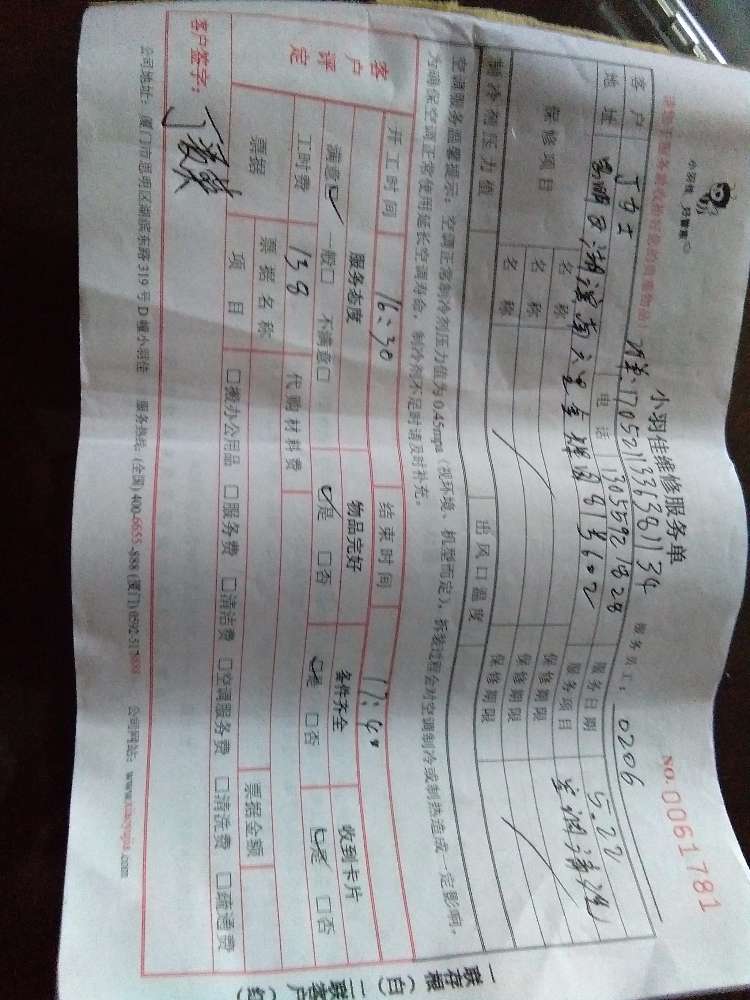 小羽佳 好管家
小羽佳维修服务单
NO.0061781
请勿于服务前收拾好您的贵重物品!
服务员工: 0206
客户 丁女士 电话 13055921828 服务日期 5.22
地址 服务项目 空调清洗
保修项目 名称 保修期限
名称 保修期限
名称 保修期限
制冷剂压力值 出风口温度
空调服务温馨提示: 空调正常制冷剂压力值为0.45mpa (视环境、机型而定), 拆装过程会对空调制冷或制热造成一定影响,
为确保空调正常使用延长空调寿命, 制冷剂不足时请及时补充。
开工时间 16:30 结束时间 17:40
客户评定 服务态度 物品完好 备件齐全 收到卡片
满意☑ 一般□ 不满意□ ☑是 □否 ☑是 □否 ☑是 □否
工时费 138 代购材料费
票据 票据名称 票据金额
项目 □搬办公用品 □服务费 □清洁费 □空调服务费 □清洗费 □疏通费
客户签字:
公司地址: 厦门市思明区湖滨东路319号D幢小羽佳 服务热线: (全国) 400-6655-888 (厦门) 公司网站:
一联存根 (白) 二联客户